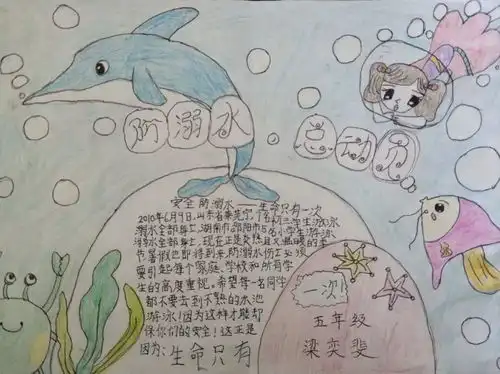 防溺水
总动员
安全防溺水——生命只有一次
2010年6月9日,山东省莱芜
名初三学生游泳
溺水全部身亡,湖南市邵阳市5名小学生游泳
溺水全部身亡,现在正是炎热且又温暖的季
节暑假也即将到来,防溺水的工必须
要引起每个家庭、学校和所有学
生的高度重视。希望每一名同学
都不要去到不熟的水池
游泳!因为这样才能却
保你们的安全!这正是
因为:生命只有
一次!
五年级
梁奕斐